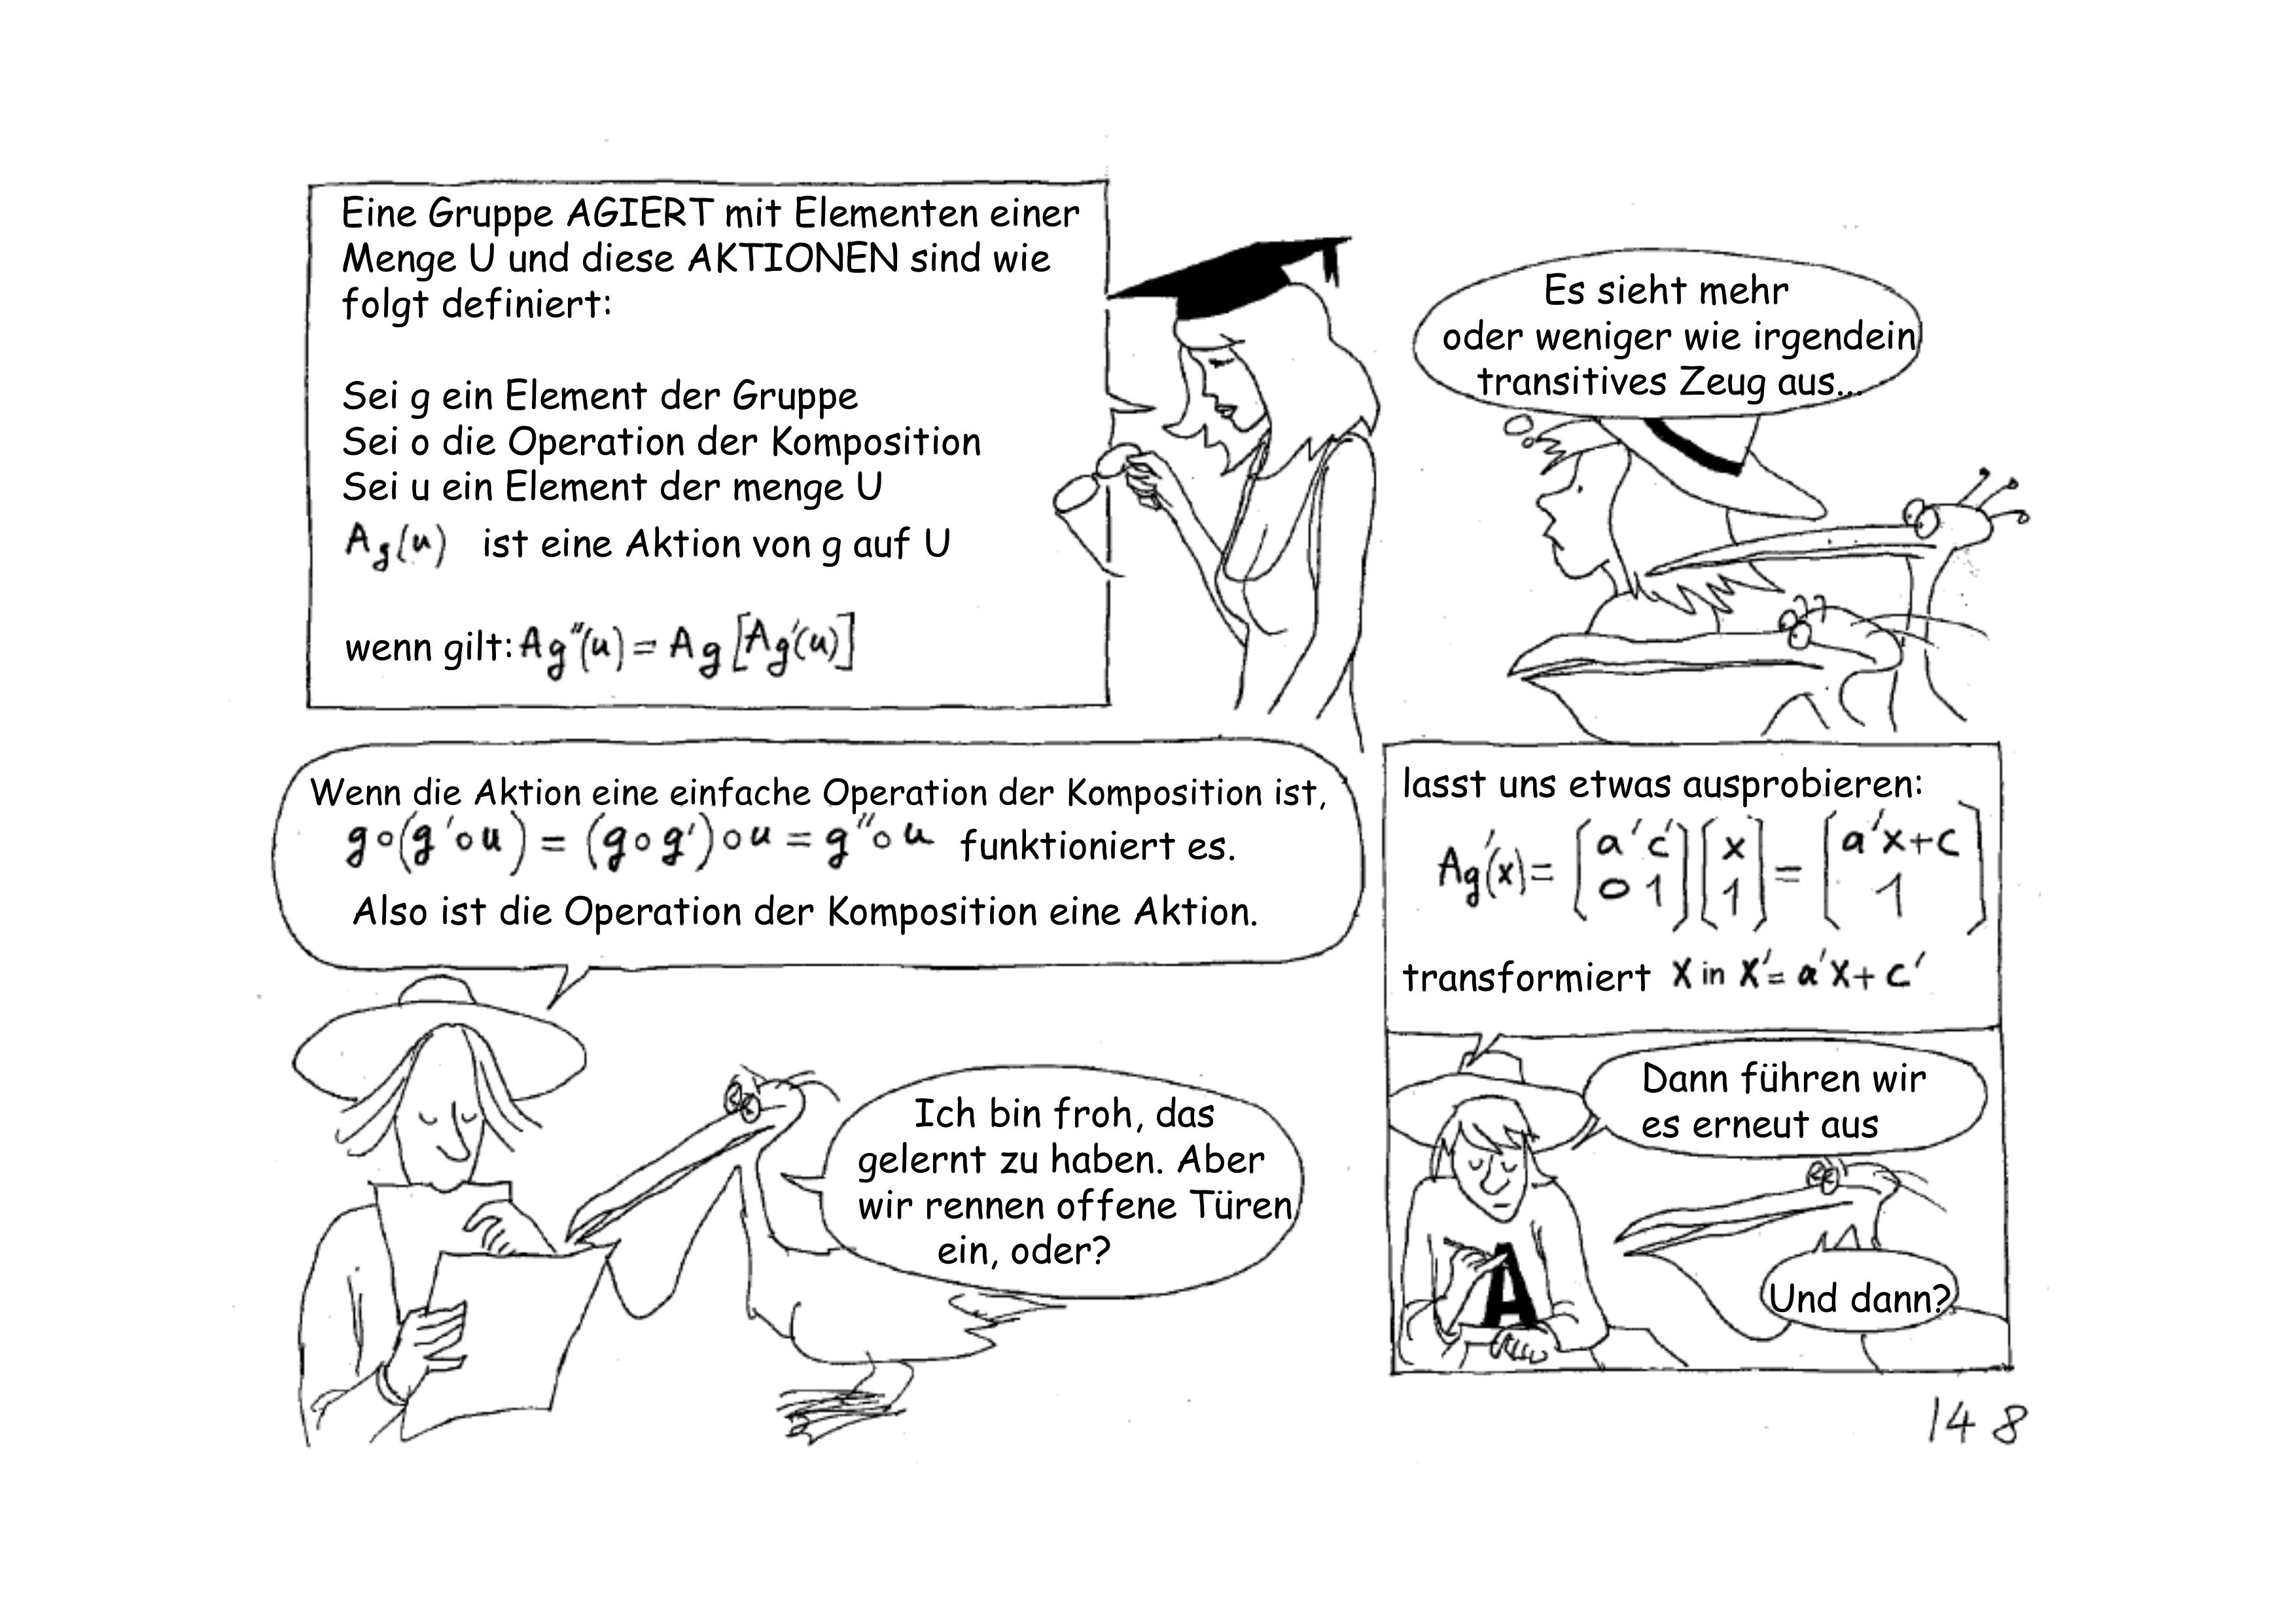 Eine Gruppe AGIERT mit Elementen einer
Menge U und diese AKTIONEN sind wie
folgt definiert:
Sei g ein Element der Gruppe
Sei o die Operation der Komposition
Sei u ein Element der menge U
Ag(u) ist eine Aktion von g auf U
wenn gilt: Ag"(u) = Ag [Ag'(u)]
Es sieht mehr
oder weniger wie irgendein
transitives Zeug aus...
Wenn die Aktion eine einfache Operation der Komposition ist,
g∘(g'∘u) = (g∘g')∘u = g"∘u funktioniert es.
Also ist die Operation der Komposition eine Aktion.
Ich bin froh, das
gelernt zu haben. Aber
wir rennen offene Türen
ein, oder?
lasst uns etwas ausprobieren:
Ag'(x) = [a' c'; 0 1] [x; 1] = [a'x+c; 1]
transformiert X in X' = a'X + c'
Dann führen wir
es erneut aus
A
Und dann?
148